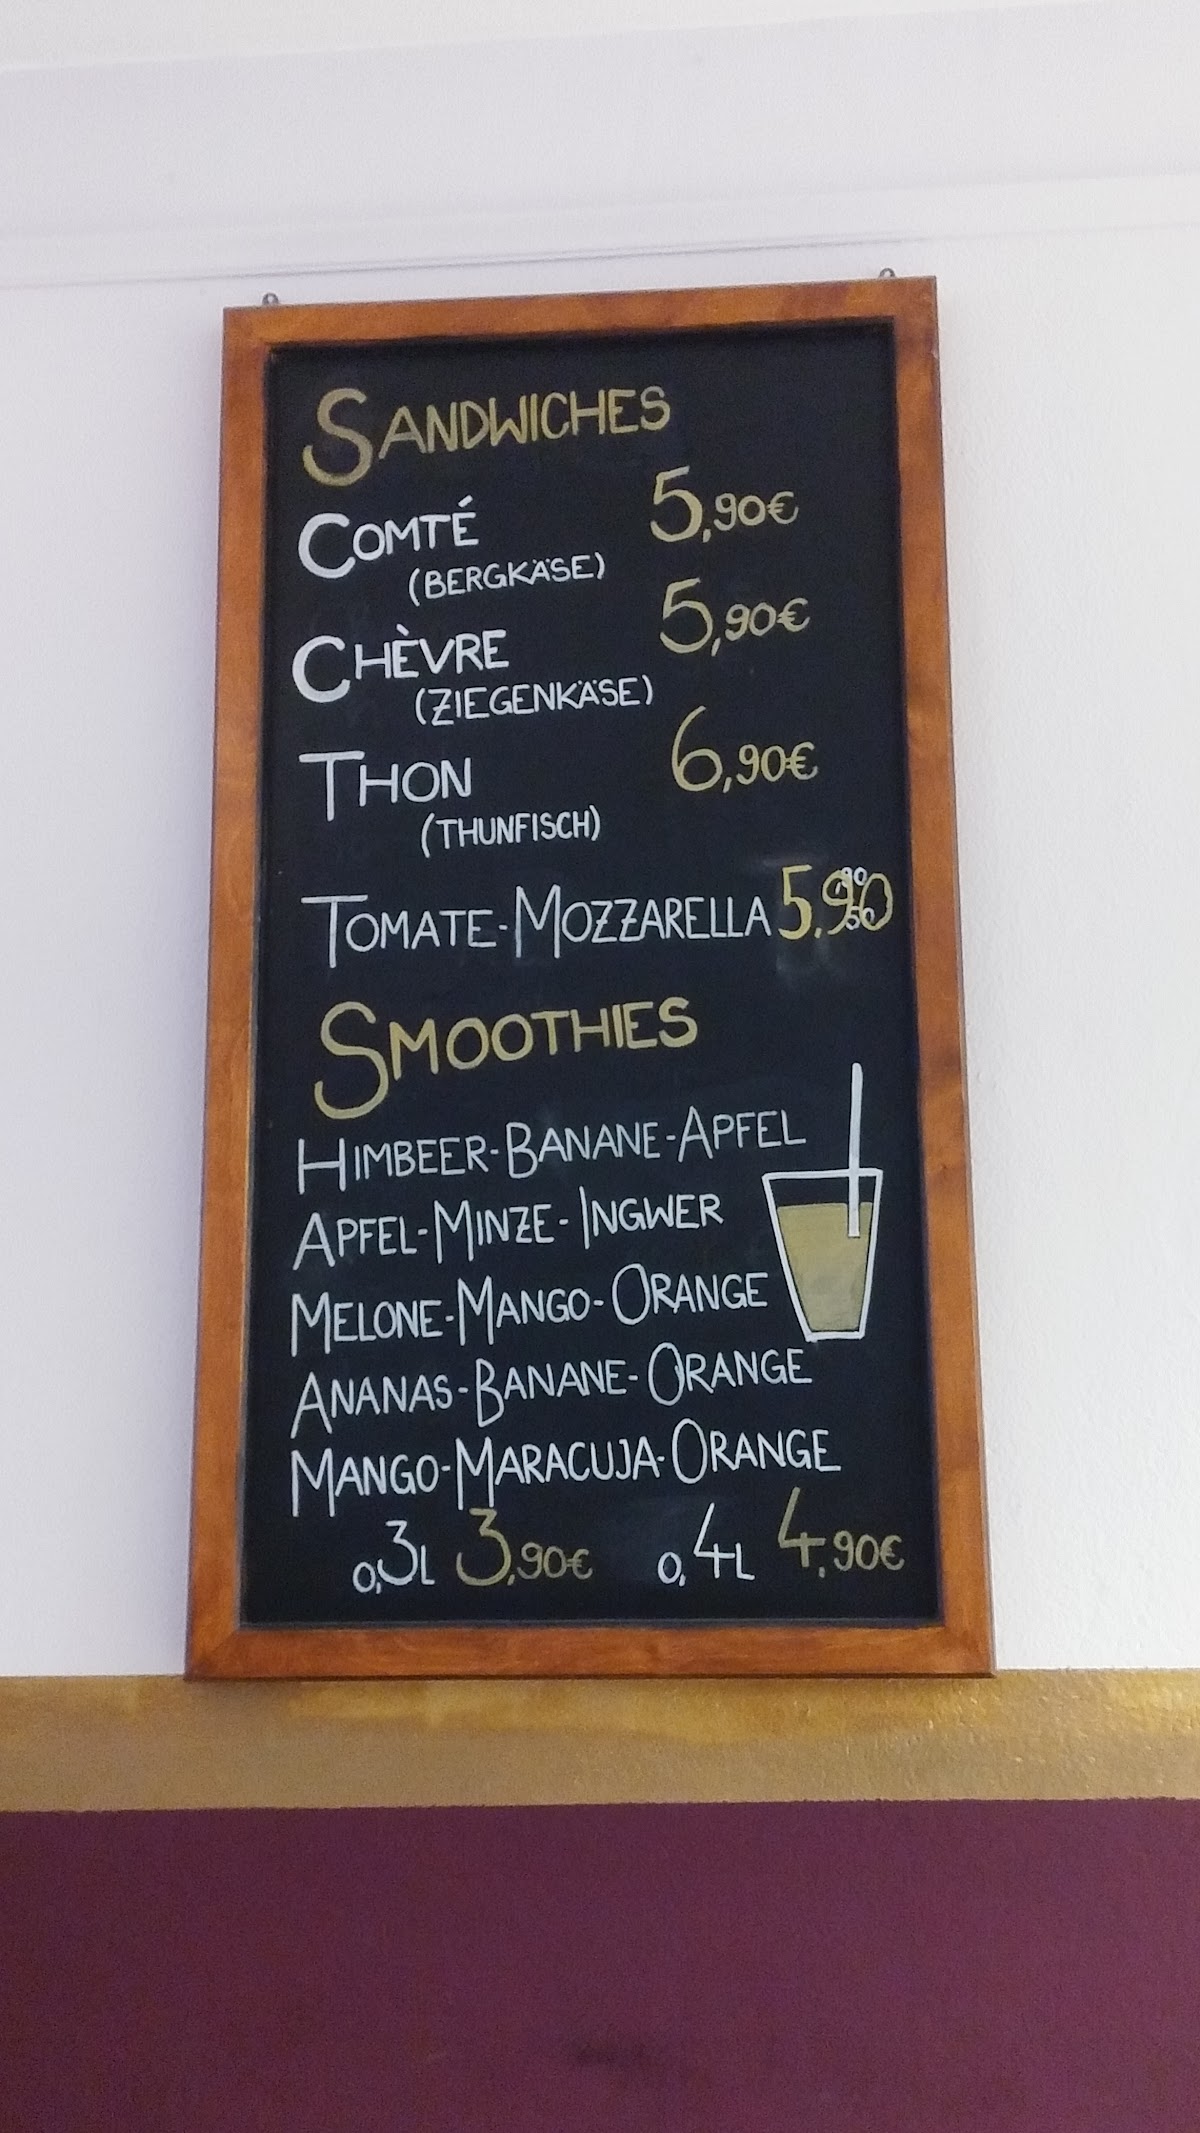 SANDWICHES
COMTÉ 5,90€
(BERGKÄSE)
CHÈVRE 5,90€
(ZIEGENKÄSE)
THON 6,90€
(THUNFISCH)
TOMATE-MOZZARELLA 5,90
SMOOTHIES
HIMBEER-BANANE-APFEL
APFEL-MINZE-INGWER
MELONE-MANGO-ORANGE
ANANAS-BANANE-ORANGE
MANGO-MARACUJA-ORANGE
0,3L 3,90€ 0,4L 4,90€